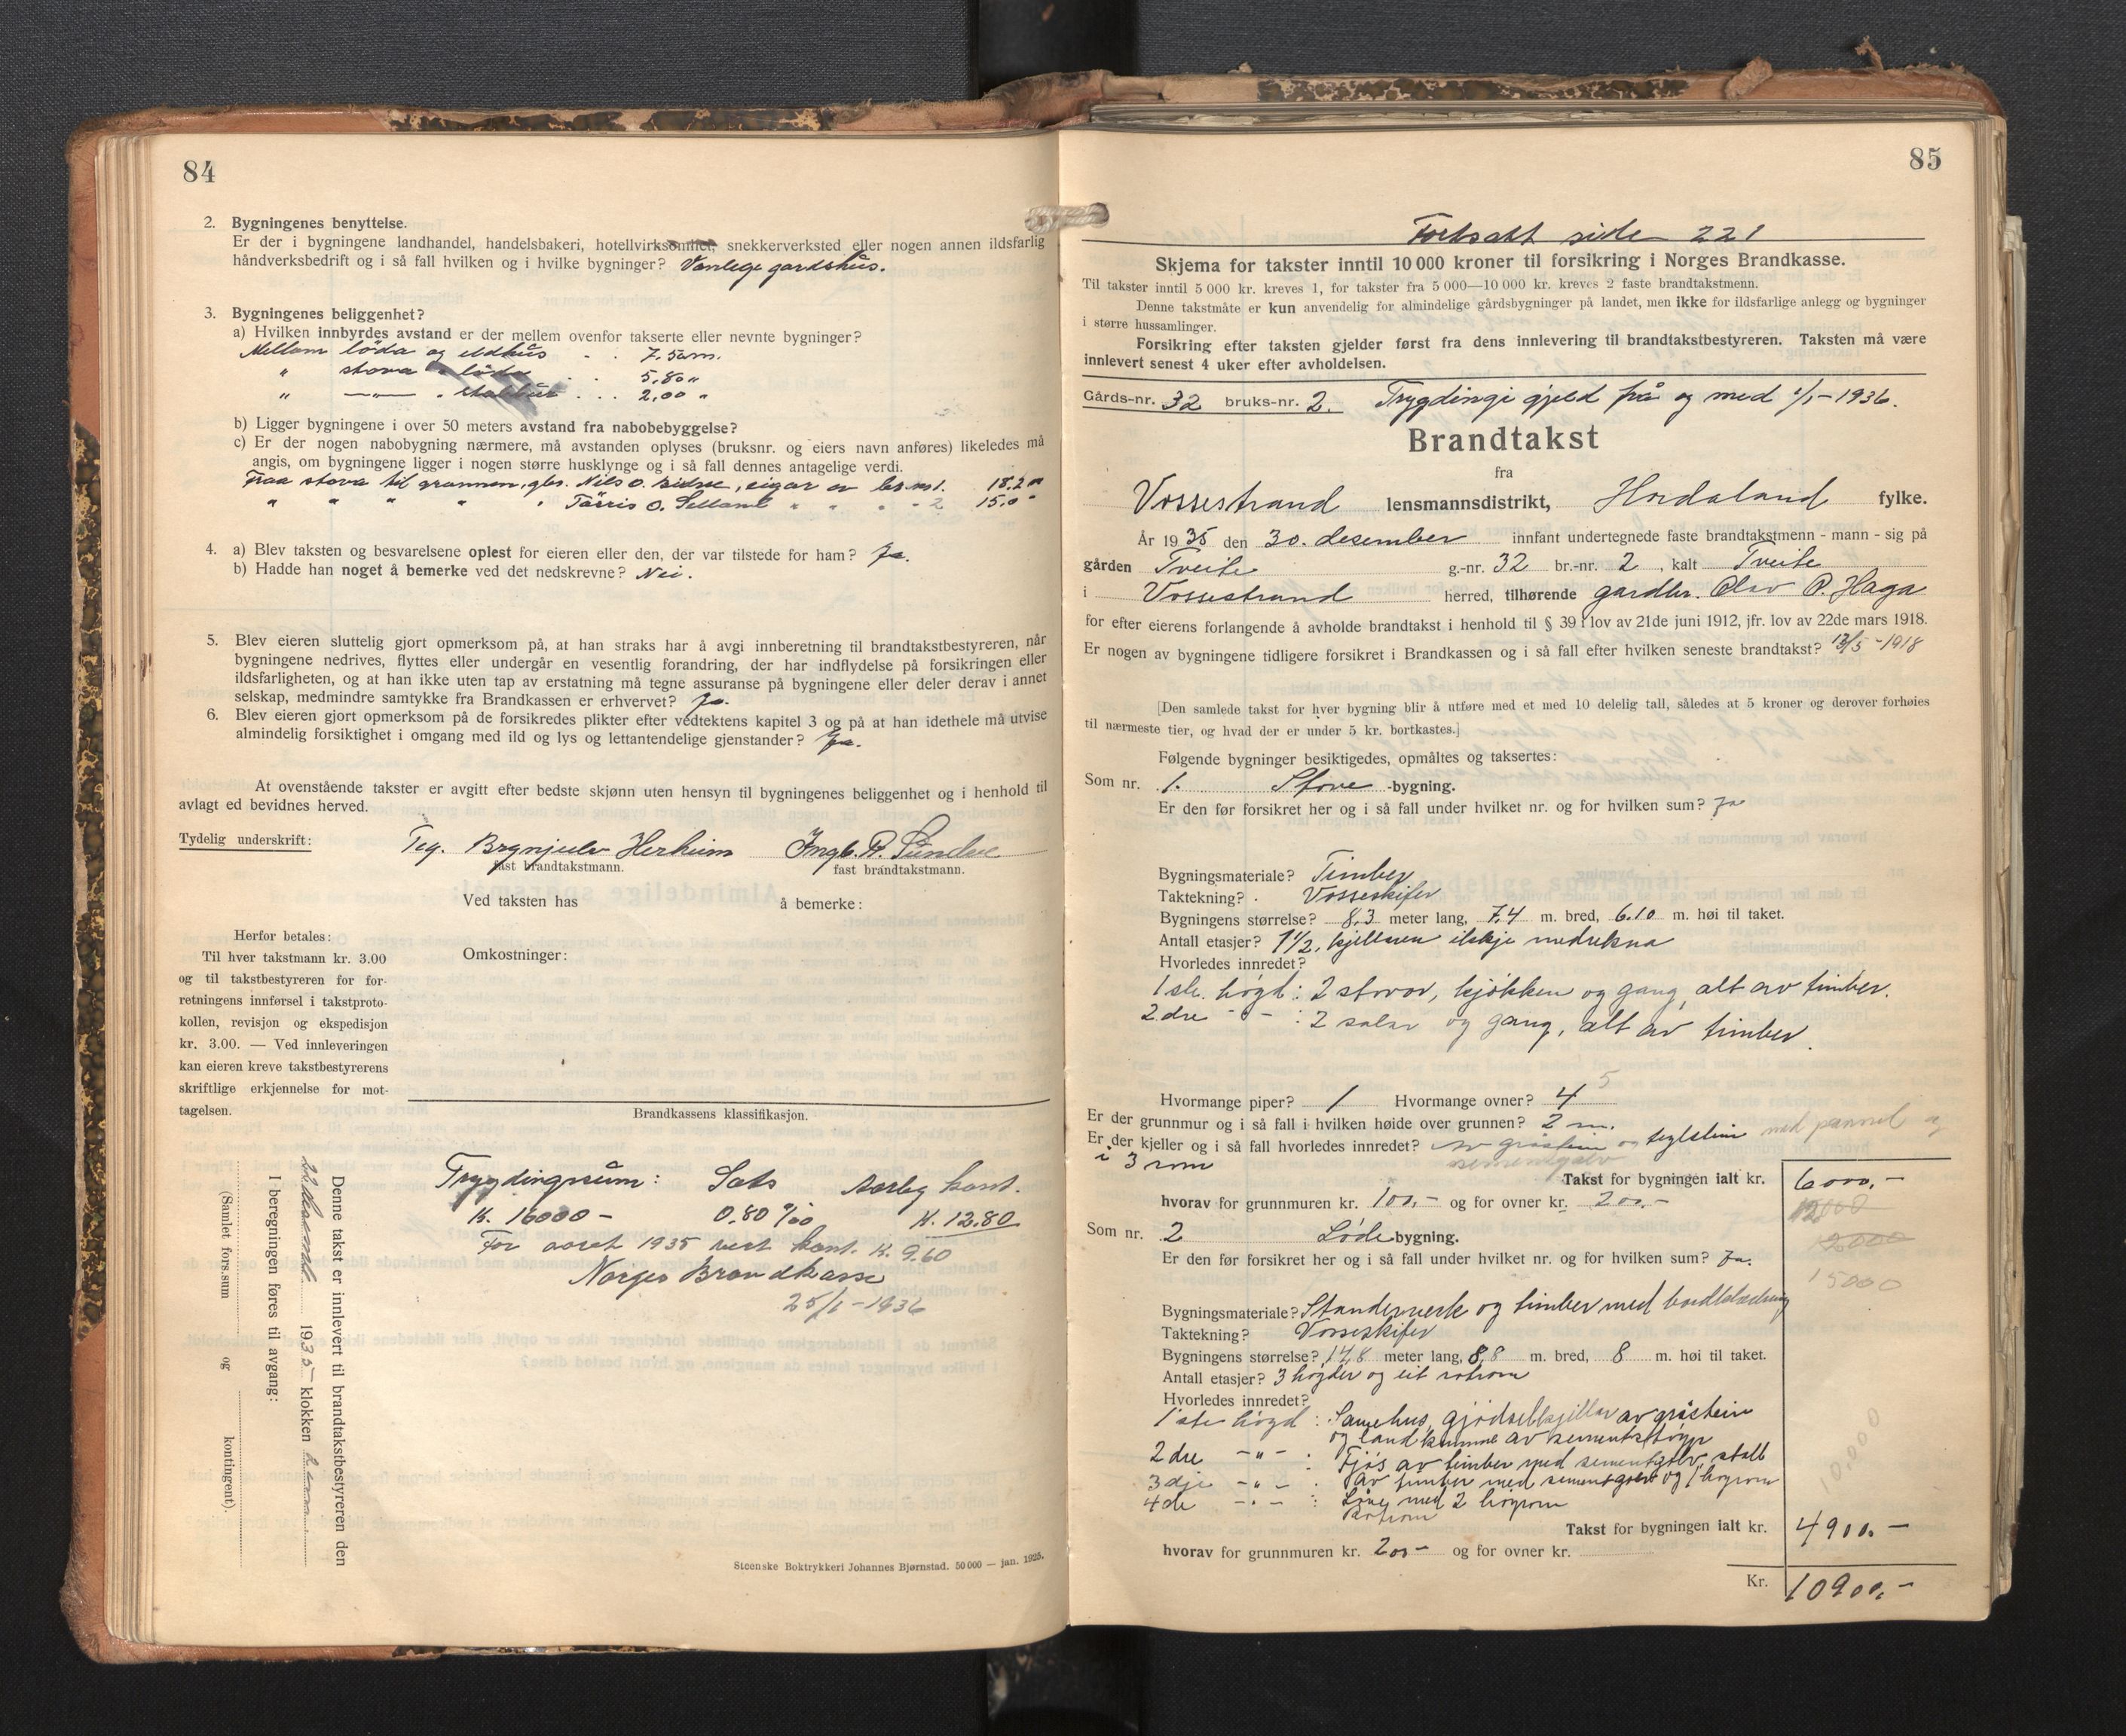 84
2. Bygningenes benyttelse.
Er der i bygningene landhandel, handelsbakeri, hotellvirksomhet, snekkerverksted eller nogen annen ildsfarlig
håndverksbedrift og i så fall hvilken og i hvilke bygninger? Vanlege gardshus.
3. Bygningenes beliggenhet?
a) Hvilken innbyrdes avstand er der mellem ovenfor takserte eller nevnte bygninger?
Mellom löda og eldhus - . 7.50 m.
" stova " löda . . 5,80 "
" —"— " stabbur . . . 2,00 "
b) Ligger bygningene i over 50 meters avstand fra nabobebyggelse?
c) Er der nogen nabobygning nærmere, må avstanden oplyses (bruksnr. og eiers navn anføres) likeledes må
angis, om bygningene ligger i nogen større husklynge og i så fall dennes antagelige verdi.
Fraa stova til grannen, gbr. Nils O. , eigar av br.nr 1. 18.2 "
" " " " " O. " " " - 2 15.0 "
4. a) Blev taksten og besvarelsene oplest for eieren eller den, der var tilstede for ham? Ja.
b) Hadde han noget å bemerke ved det nedskrevne? Nei.
5. Blev eieren sluttelig gjort opmerksom på, at han straks har å avgi innberetning til brandtakstbestyreren, når
bygningene nedrives, flyttes eller undergår en vesentlig forandring, der har indflydelse på forsikringen eller
ildsfarligheten, og at han ikke uten tap av erstatning må tegne assuranse på bygningene eller deler derav i annet
selskap, medmindre samtykke fra Brandkassen er erhvervet? Ja.
6. Blev eieren gjort opmerksom på de forsikredes plikter efter vedtektens kapitel 3 og på at han idethele må utvise
almindelig forsiktighet i omgang med ild og lys og lettantendelige gjenstander? Ja.
At ovenstående takster er avgitt efter bedste skjønn uten hensyn til bygningenes beliggenhet og i henhold til
avlagt ed bevidnes herved.
Tydelig underskrift: Teg. Brynjulv Herheim Ingb. P. Sundve
fast brandtakstmann. fast brandtakstmann.
Ved taksten has å bemerke:
Herfor betales:
Til hver takstmann kr. 3.00
og til takstbestyreren for for-
retningens innførsel i takstproto-
kollen, revisjon og ekspedisjon
kr. 3.00. — Ved innleveringen
kan eieren kreve takstbestyrerens
skriftlige erkjennelse for mot-
tagelsen.
Omkostninger:
Brandkassens klassifikasjon.
Trygdingssum: Sats Aarleg kont.
K. 16000 - 0.80 ‰ K. 12.80
For aaret 1935 vert kont. K. 9.60
Norges Brandkasse
25/1 - 1936
Denne takst er innlevert til brandtakstbestyreren den
1935 klokken
I beregningen føres til avgang:
(Samlet fors.sum og kontingent).
Steenske Boktrykkeri Johannes Bjørnstad. 50 000 — jan. 1925.
85
Fortsatt side 221
Skjema for takster inntil 10 000 kroner til forsikring i Norges Brandkasse.
Til takster inntil 5 000 kr. kreves 1, for takster fra 5 000—10 000 kr. kreves 2 faste brandtakstmenn.
Denne takstmåte er kun anvendelig for almindelige gårdsbygninger på landet, men ikke for ildsfarlige anlegg og bygninger
i større hussamlinger.
Forsikring efter taksten gjelder først fra dens innlevering til brandtakstbestyreren. Taksten må være
innlevert senest 4 uker efter avholdelsen.
Gårds-nr. 32 bruks-nr. 2. Trygdingi gjeld frå og med 1/1 - 1936.
Brandtakst
fra
Vossestrand lensmannsdistrikt, Hordaland fylke.
År 1935 den 30. desember innfant undertegnede faste brandtakstmenn - mann - sig på
gården Tveite g.-nr. 32 br.-nr. 2, kalt Tveite
i Vossestrand herred, tilhørende gardbr. Olav P. Haga
for efter eierens forlangende å avholde brandtakst i henhold til § 39 i lov av 21de juni 1912, jfr. lov av 22de mars 1918.
Er nogen av bygningene tidligere forsikret i Brandkassen og i så fall efter hvilken seneste brandtakst? 13/5 - 1918
[Den samlede takst for hver bygning blir å utføre med et med 10 delelig tall, således at 5 kroner og derover forhøies
til nærmeste tier, og hvad der er under 5 kr. bortkastes.]
Følgende bygninger besiktigedes, opmåltes og taksertes:
Som nr. 1. Stove -bygning.
Er den før forsikret her og i så fall under hvilket nr. og for hvilken sum? Ja
Bygningsmateriale? Timber
Taktekning? Vosseskifer
Bygningens størrelse? 8,3 meter lang, 7.4 m. bred, 6.10 m. høi til taket.
Antall etasjer? 1 1/2, kjellaren ikkje medrekna
Hvorledes innredet?
1ste høgd: 2 stovor, kjøkken og gang, alt av timber.
2dre - " - : 2 salar og gang, alt av timber.
Hvormange piper? 1 Hvormange ovner? 4 5
Er der grunnmur og i så fall i hvilken høide over grunnen? 2 m.
Er der kjeller og i så fall hvorledes innredet? av gråstein og teglstein med pannel og
i 3 rom sementgolv
Takst for bygningen ialt kr. 6000,-
hvorav for grunnmuren kr. 100,- og for ovner kr. 200,-
12000
Som nr. 2 Løde bygning.
Er den før forsikret her og i så fall under hvilket nr. og for hvilken sum? Ja.
15000
Bygningsmateriale? Standerverk og timber med bordklædning
Taktekning? Vosseskifer
Bygningens størrelse? 14,8 meter lang, 8,8 m. bred, 8 m. høi til taket.
Antall etasjer? 3 høgder og eit rotrom
Hvorledes innredet?
1ste høgd : Sauehus, gjødselkjellar av gråstein
og landkumme av sementstøyp
2dre - " - : Fjøs av timber med sementgolv, stall
3dje - " - av timber med sementgolv og 1 høyrom
4de - " - : Låve med 2 høyrom
Rotrom
10,000
Takst for bygningen ialt kr. 4900.-
hvorav for grunnmuren kr. 200 - og for ovner kr.
Kr. 10900,-